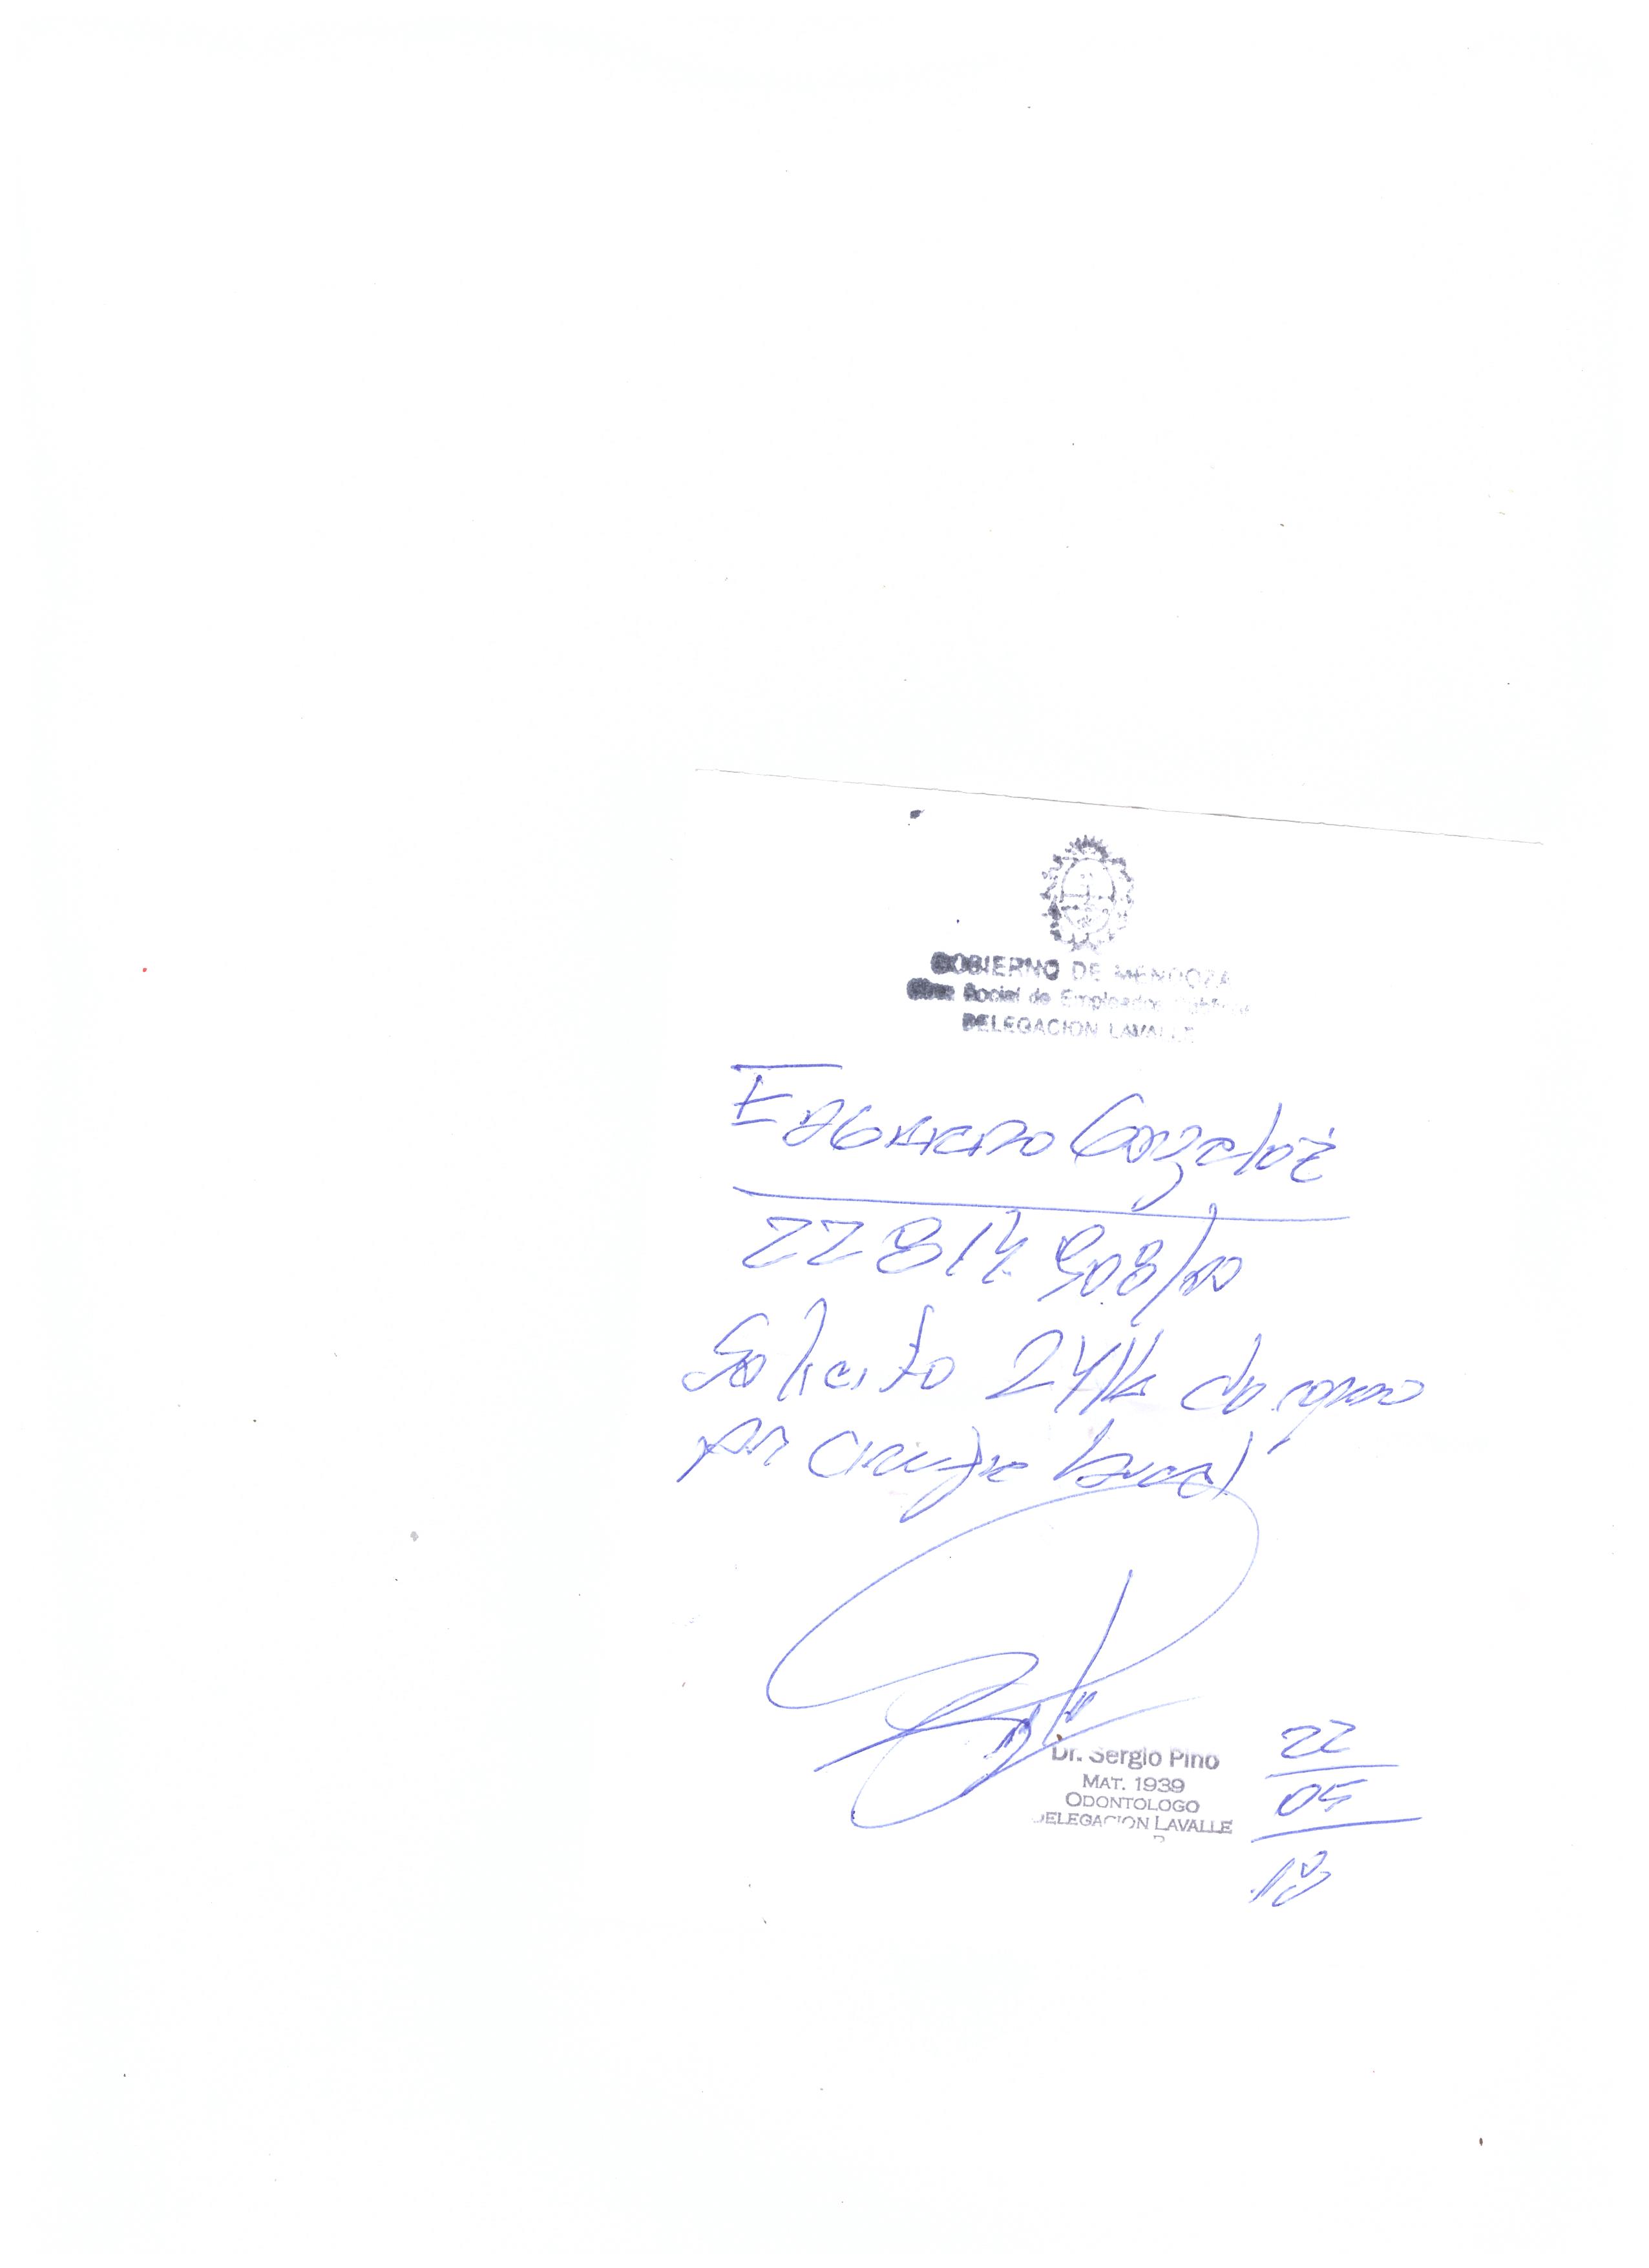 GOBIERNO DE MENDOZA
Obra Social de Empleados Públicos
DELEGACION LAVALLE
EDGARDO Gonzalez
22814908/00
Solicito 24 hs de reposo
por cirugia bucal
Dr. Sergio Pino
MAT. 1939
ODONTOLOGO
DELEGACION LAVALLE
22
05
19